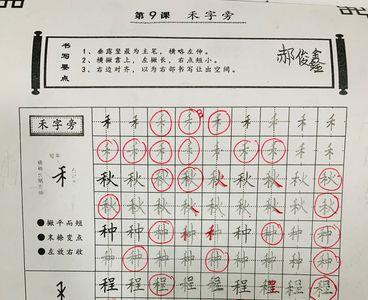 第9课 禾字旁
书写要点
1、垂露竖最为主笔，横略左伸。
2、横撇靠上，左撇长，右点短小。
3、右边对齐，以为右部书写让出空间。
郝俊鑫
禾字旁
撇平而短
木捺变点
左放右收
禾 禾 禾 禾 禾 禾 禾 禾
禾 禾 禾 禾 禾 禾 禾 禾
秋 秋 秋 秋 秋 秋 秋 秋
秋 秋 秋 秋 秋 秋 秋 秋
种 种 种 种 种 种 种 种
种 种 种 种 种 种 种 种
程 程 程 程 程 程 程 程